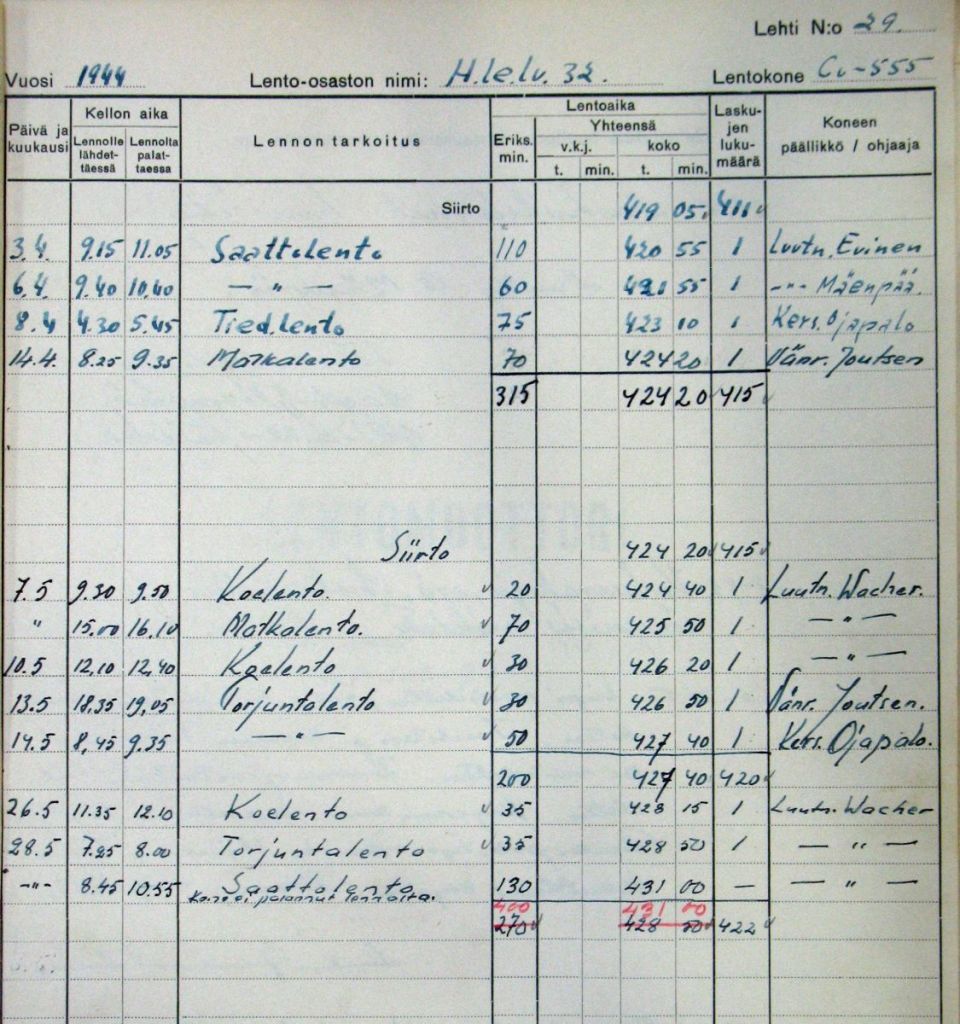 Lehti N:o 29.
Vuosi 1944 Lento-osaston nimi: H.le.lv. 32. Lentokone Cu-555
Päivä ja kuukausi Kellon aika Lennolle lähdettäessä Lennolta palattaessa Lennon tarkoitus Eriks. min. Lentoaika Yhteensä v.k.j. t. min. koko t. min. Laskujen lukumäärä Koneen päällikkö / ohjaaja
Siirto 419 05 411
3.4. 9.15 11.05 Saattolento 110 420 55 1 Luutn. Evinen
6.4. 9.40 10.40 — " — 60 421 55 1 -"- Mäenpää.
8.4 4.30 5.45 Tied.lento 75 423 10 1 Kers. Ojapalo
14.4. 8.25 9.35 Matkalento 70 424 20 1 Vänr. Joutsen
315 424 20 415
Siirto 424 20 415
7.5 9.30 9.50 Koelento. 20 424 40 1 Luutn. Wacher.
" 15.00 16.10 Matkalento. 70 425 50 1 — " —
10.5 12,10 12,40 Koelento 30 426 20 1 — " —
13.5 18,35 19,05 Torjuntalento 30 426 50 1 Vänr. Joutsen.
14.5 8,45 9.35 — " — 50 427 40 1 Kers. Ojapalo.
200 427 40 420
26.5 11.35 12.10 Koelento 35 428 15 1 Luutn. Wacher
28.5 7.25 8.00 Torjuntalento 35 428 50 1 — " —
-"- 8.45 10.55 Saattolento 130 431 00 — — " —
Kone ei palannut lennolta.
400 431 00
270 428 50 422